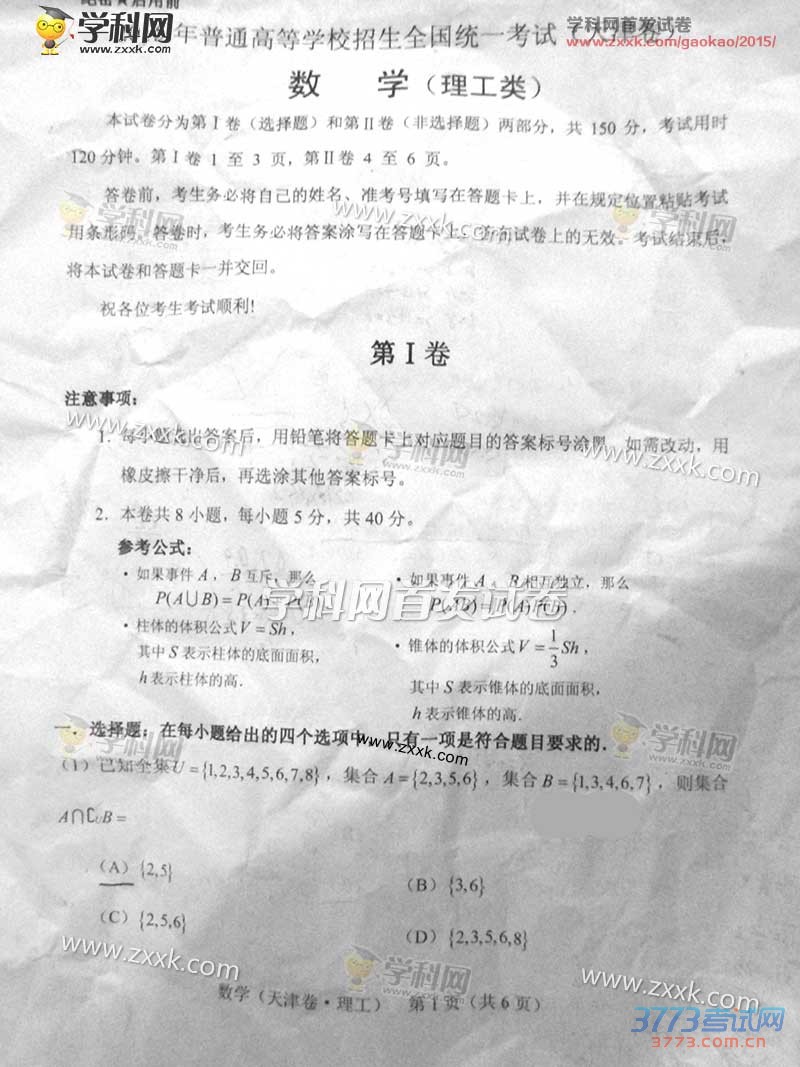 绝密★启用前
年普通高等学校招生全国统一考试（天津卷）
学科网首发试卷
www.zxxk.com/gaokao/2015/
学科网
www.zxxk.com
数 学（理工类）
本试卷分为第Ⅰ卷（选择题）和第Ⅱ卷（非选择题）两部分，共 150 分，考试用时
120 分钟。第Ⅰ卷 1 至 3 页，第Ⅱ卷 4 至 6 页。
答卷前，考生务必将自己的姓名、准考号填写在答题卡上，并在规定位置粘贴考试
用条形码。答卷时，考生务必将答案涂写在答题卡上，答在试卷上的无效。考试结束后，
将本试卷和答题卡一并交回。
祝各位考生考试顺利!
学科网
www.zxxk.com
学科网
第Ⅰ卷
注意事项：
1. 每小题选出答案后，用铅笔将答题卡上对应题目的答案标号涂黑。如需改动，用
橡皮擦干净后，再选涂其他答案标号。
www.zxxk.com
学科网
www.zxxk.com
2. 本卷共 8 小题，每小题 5 分，共 40 分。
参考公式：
·如果事件 A，B 互斥，那么
P(A∪B)=P(A)+P(B)．
·如果事件 A，B 相互独立，那么
P(AB)=P(A)P(B)．
学科网首发试卷
·柱体的体积公式 V=Sh，
其中 S 表示柱体的底面面积，
h 表示柱体的高．
·锥体的体积公式 V=1/3Sh，
其中 S 表示锥体的底面面积，
h 表示锥体的高．
一．选择题：在每小题给出的四个选项中，只有一项是符合题目要求的．
学科网
www.zxxk.com
学科网
（1）已知全集U={1,2,3,4,5,6,7,8}，集合 A={2,3,5,6}，集合 B={1,3,4,6,7}，则集合
A∩∁UB=
（A）{2,5}
（B）{3,6}
（C）{2,5,6}
（D）{2,3,5,6,8}
www.zxxk.com
学科网
www.zxxk.com
数学（天津卷·理工） 第 1 页（共 6 页）
3773考试网
3773.com.cn